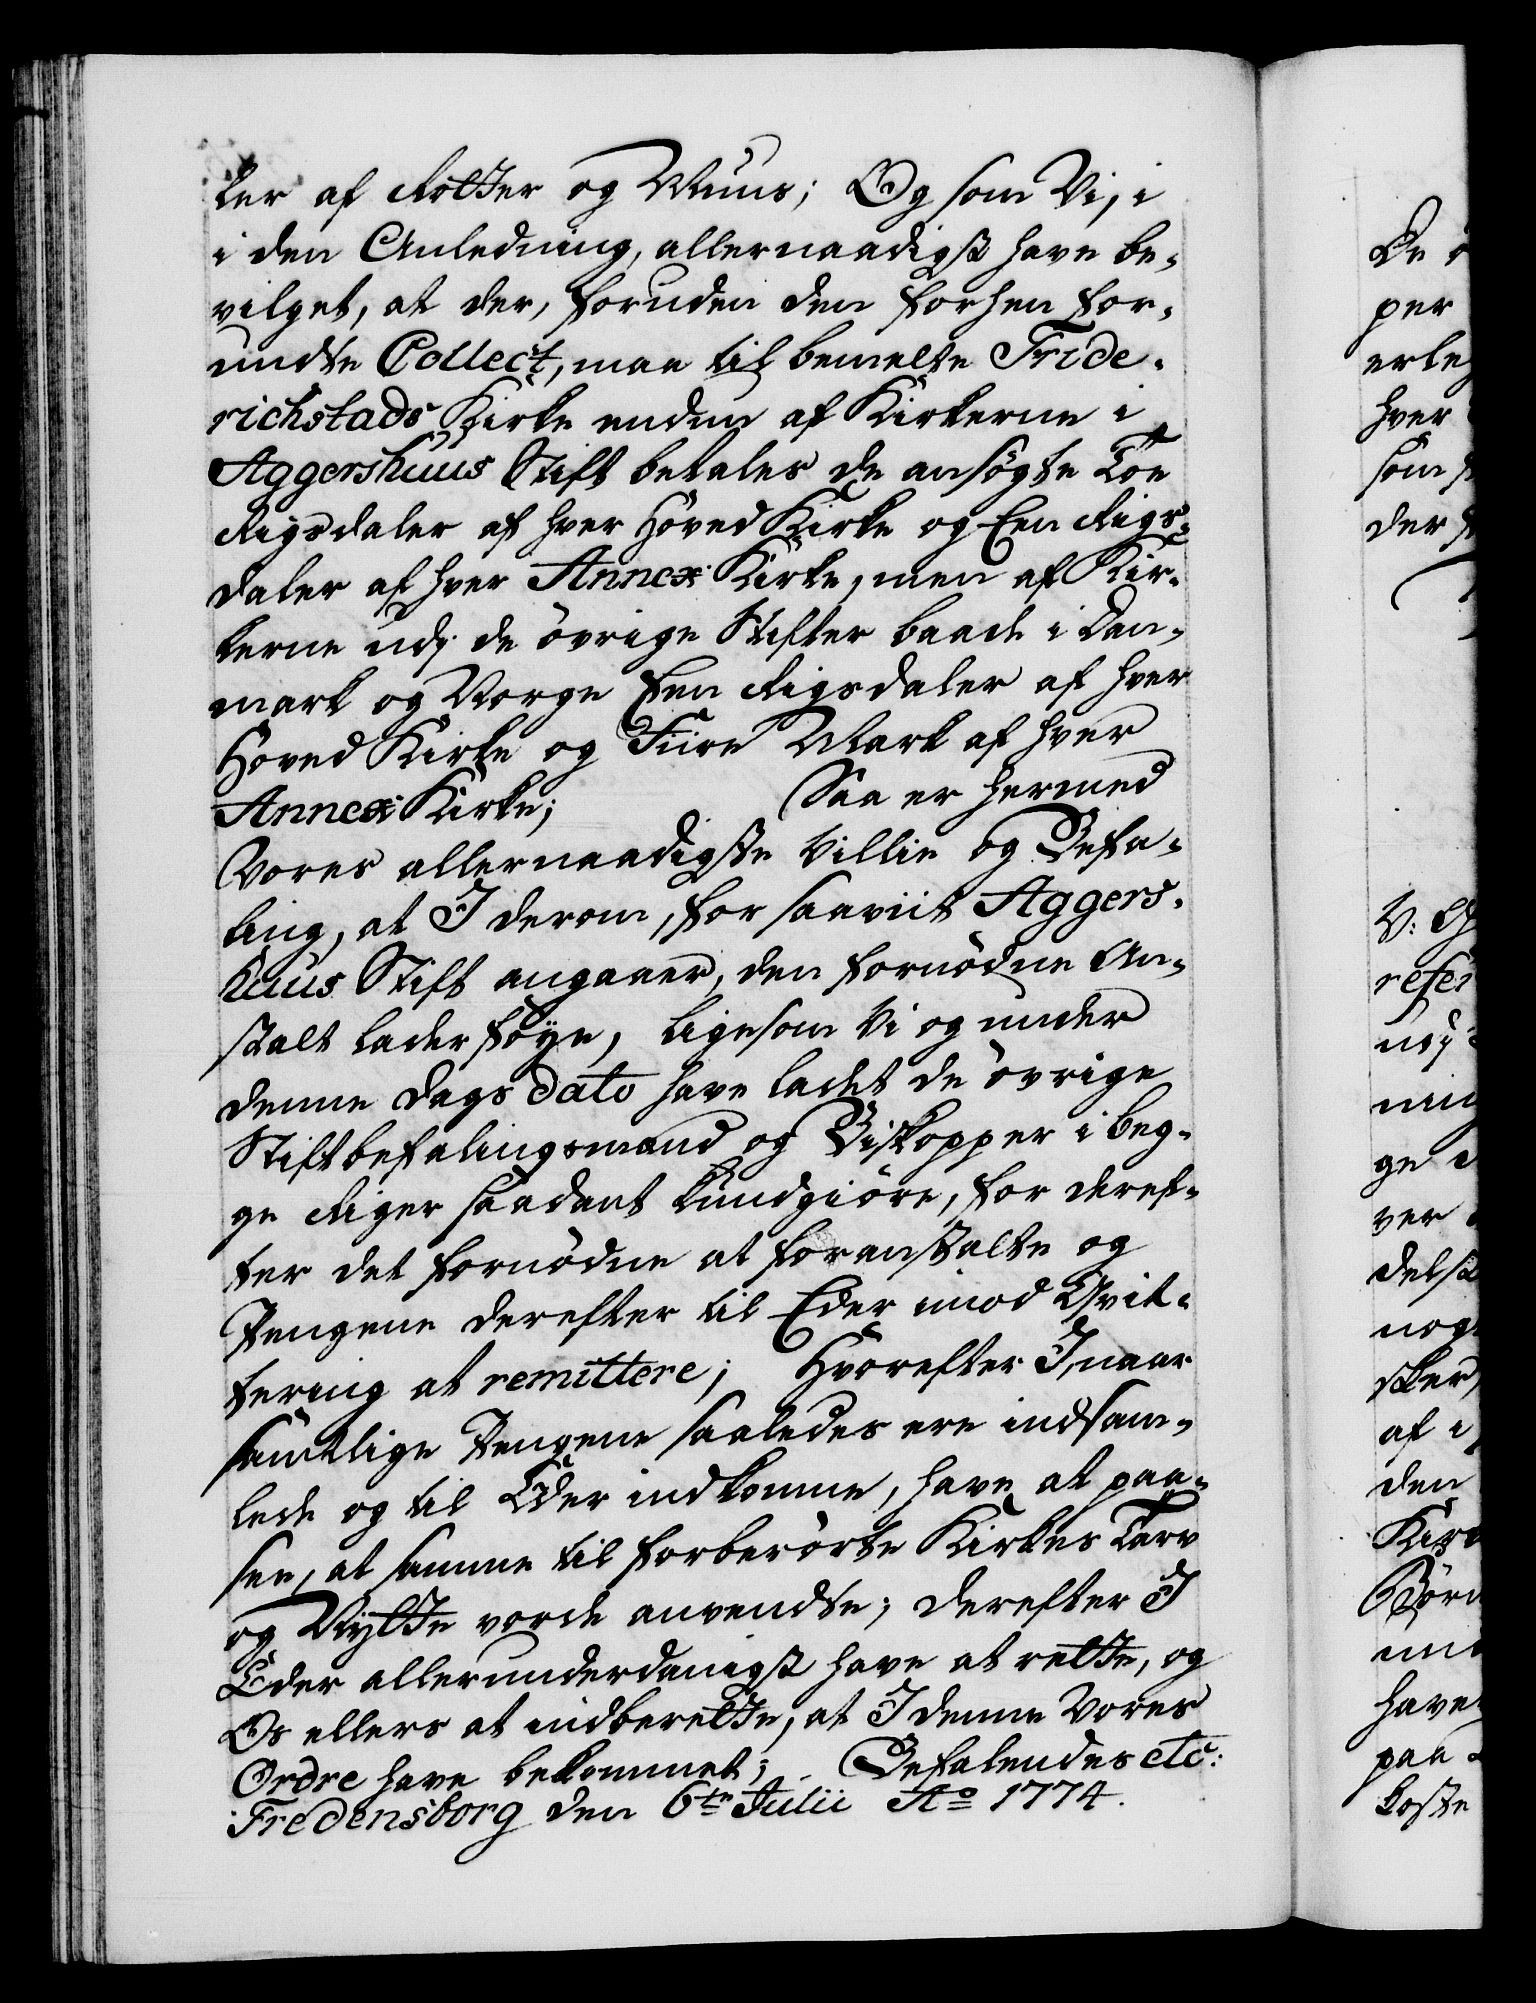 ker af Rotter og Muus; Og som Vi, i
i den Anledning, allernaadigst have be-
vilget, at der, foruden den forhen for-
undte Collect, maa til bemelte Fride-
richstads Kirke enden af Kirkerne i
Aggershuus Stift betales de ansøgte Toe
Rigsdaler af hver Hoved Kirke og Een Rigs-
daler af hver Annex Kirke, men af Kir-
kerne udj de øvrige Stifter baade i Dan-
mark og Norge Een Rigsdaler af hver
Hoved Kirke og Fiire Mark af hver
Annex Kirke; Saa er hermed
Vores allernaadigste Villie og Befa-
ling, at I derom, for saaviit Aggers-
huus Stift angaaer, den fornødne An-
stalt lader føye, ligesom Vi og under
denne Dags Dato have ladet de øvrige
Stiftbefalingsmænd og Biskopper i beg-
ge Riger saadant kundgiøre, for deref-
ter det fornødne at foranstalte og
Pengene derefter til Eder imod Qvit-
tering at remittere; Hvorefter I, naar
samtlige Pengene saaledes ere indsam-
lede og til Eder indkomne, have at paa-
see, at samme til forberørte Kirkes Tarv
og Nytte vorde anvendte; derefter I
Eder allerunderdanigst have at rette, og
Os ellers at indberette, at I denne Vores
Ordre have bekommet; Befalendes etc:
Fredensborg den 6te Julii Ao 1774.
De
per
erle
hver
som
der
V:
refer
udj
ge
ver
delst
nog
sker
af i
den
Kir
Børn
have
paa
koste